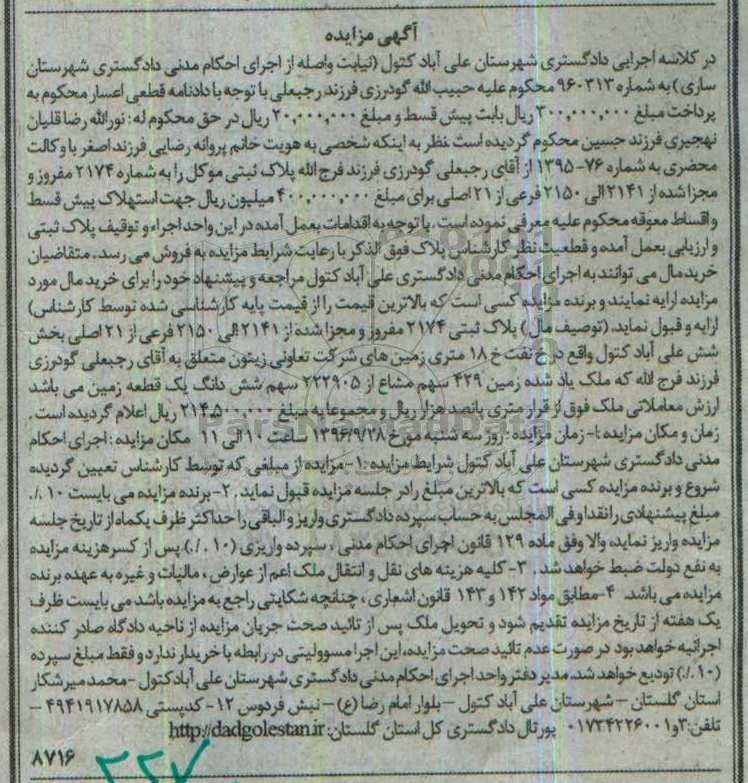 آگهی مزایده
در کلاسه اجرایی دادگستری شهرستان علی آباد کتول (نیابت واصله از اجرای احکام مدنی دادگستری شهرستان
ساری) به شماره ۹۶۰۳۱۳ محکوم علیه حبیب الله گودرزی فرزند رجبعلی با توجه با دادنامه قطعی اعسار محکوم به
پرداخت مبلغ ۳۰۰,۰۰۰,۰۰۰ ریال بابت پیش قسط و مبلغ ۲۰,۰۰۰,۰۰۰ ریال در حق محکوم له : نورالله رضا قلیان
نهجیری فرزند حسین محکوم گردیده است .نظر به اینکه شخصی به هویت خانم پروانه رضایی فرزند اصغر با وکالت
محضری به شماره ۷۶-۱۳۹۵ از آقای رجبعلی گودرزی فرزند فرج الله پلاک ثبتی موکل را به شماره ۲۱۷۴ مفروز و
مجزا شده از ۲۱۴۱ الی ۲۱۵۰ فرعی از ۲۱ اصلی برای مبلغ ۴۰۰,۰۰۰,۰۰۰ میلیون ریال جهت استهلاک پیش قسط
و اقساط معوقه محکوم علیه معرفی نموده است . با توجه به اقدامات بعمل آمده در این واحد اجراء و توقیف پلاک ثبتی
و ارزیابی بعمل آمده و قطعیت نظر کارشناس پلاک فوق الذکر با رعایت شرایط مزایده به فروش می رسد . متقاضیان
خرید مال می توانند به اجرای احکام مدنی دادگستری علی آباد کتول مراجعه و پیشنهاد خود را برای خرید مال مورد
مزایده ارایه نمایند و برنده مزایده کسی است که بالاترین قیمت را از قیمت پایه کارشناسی شده توسط کارشناس)
ارایه و قبول نماید. (توصیف مال) پلاک ثبتی ۲۱۷۴ مفروز و مجزا شده از ۲۱۴۱ الی ۲۱۵۰ فرعی از ۲۱ اصلی بخش
شش علی آباد کتول واقع در خ نفت خ ۱۸ متری زمین های شرکت تعاونی زیتون متعلق به آقای رجبعلی گودرزی
فرزند فرج الله که ملک یاد شده زمین ۴۲۹ سهم مشاع از ۲۲۲۹۰۵ سهم شش دانگ یک قطعه زمین می باشد
ارزش معاملاتی ملک فوق از قرار متری پانصد هزار ریال و مجموعا به مبلغ ۲۱۴,۵۰۰,۰۰۰ ریال اعلام گردیده است .
زمان و مکان مزایده :۱- زمان مزایده : روز سه شنبه مورخ ۱۳۹۶/۹/۲۸ ساعت ۱۰ الی ۱۱ مکان مزایده : اجرای احکام
مدنی دادگستری شهرستان علی آباد کتول شرایط مزایده :۱-مزایده از مبلغی که توسط کارشناس تعیین گردیده
شروع و برنده مزایده کسی است که بالاترین مبلغ را در جلسه مزایده قبول نماید . ۲- برنده مزایده می بایست ۱۰ ./.
مبلغ پیشنهادی را نقدا و فی المجلس به حساب سپرده دادگستری واریز و الباقی را حداکثر ظرف یکماه از تاریخ جلسه
مزایده واریز نماید والا وفق ماده ۱۲۹ قانون اجرای احکام مدنی ، سپرده واریزی (۱۰ ./.) پس از کسر هزینه مزایده
به نفع دولت ضبط خواهد شد . ۳- کلیه هزینه های نقل و انتقال ملک اعم از عوارض ، مالیات و غیره به عهده برنده
مزایده می باشد. ۴-مطابق مواد ۱۴۲ و ۱۴۳ قانون اشعاری ، چنانچه شکایتی راجع به مزایده باشد می بایست ظرف
یک هفته از تاریخ مزایده تقدیم شود و تحویل ملک پس از تائید صحت جریان مزایده از ناحیه دادگاه صادر کننده
اجرائیه خواهد بود در صورت عدم تائید صحت مزایده، این اجرا مسوولیتی در رابطه با خریدار ندارد و فقط مبلغ سپرده
(۱۰ ./.) تودیع خواهد شد. مدیر دفتر واحد اجرای احکام مدنی دادگستری شهرستان علی آباد کتول -محمد میرشکار
استان گلستان – شهرستان علی آباد کتول – بلوار امام رضا (ع) – نبش فردوس ۱۲ - کدپستی ۴۹۴۱۹۱۷۸۵۸ –
تلفن:۳و۰۱۷۳۴۲۲۶۰۰۱ پورتال دادگستری کل استان گلستان: http://dadgolestan.ir
۸۷۱۶
۲۲۷
ParsNamadData